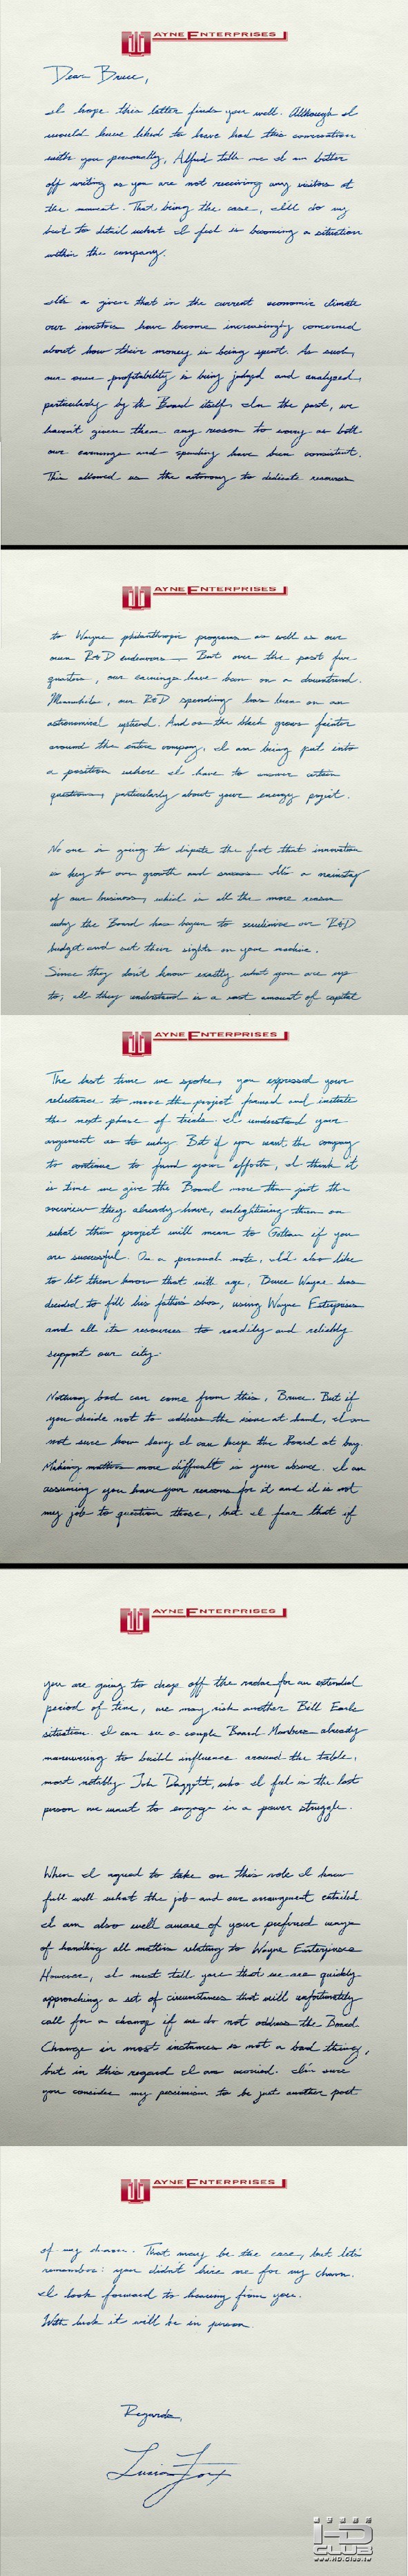 WAYNE ENTERPRISES
Dear Bruce,
I hope this letter finds you well. Although I
would have liked to have had this conversation
with you personally, Alfred tells me I am better
off writing as you are not receiving any visitors at
the moment. That being the case, I'll do my
best to detail what I feel is becoming a situation
within the company.
It's a given that in the current economic climate
our investors have become increasingly concerned
about how their money is being spent. As such,
our own profitability is being judged and analyzed,
particularly by the Board itself. In the past, we
haven't given them any reason to worry as both
our earnings and spending have been consistent.
This allowed us the autonomy to dedicate resources
WAYNE ENTERPRISES
to Wayne philanthropic programs as well as our
own R&D endeavors. But over the past five
quarters, our earnings have been on a downtrend.
Meanwhile, our R&D spending has been on an
astronomical uptrend. And as the black grows fainter
around the entire company, I am being put into
a position where I have to answer certain
questions, particularly about your energy project.
No one is going to dispute the fact that innovation
is key to our growth and success. It's a mainstay
of our business, which is all the more reason
why the Board has begun to scrutinize our R&D
budget and set their sights on your machine.
Since they don't know exactly what you are up
to, all they understand is a vast amount of capital
WAYNE ENTERPRISES
The last time we spoke, you expressed your
reluctance to move the project forward and initiate
the next phase of trials. I understand your
argument as to why. But if you want the company
to continue to fund your efforts, I think it
is time we give the Board more than just the
overview they already have, enlightening them on
what this project will mean to Gotham if you
are successful. On a personal note, I'd also like
to let them know that with age, Bruce Wayne has
decided to fill his father's shoes, using Wayne Enterprises
and all its resources to readily and reliably
support our city.
Nothing bad can come from this, Bruce. But if
you decide not to address the issue at hand, I am
not sure how long I can keep the Board at bay.
Making matters more difficult is your absence. I am
assuming you have your reasons for it and it is not
my job to question those, but I fear that if
WAYNE ENTERPRISES
you are going to drop off the radar for an extended
period of time, we may risk another Bill Earle
situation. I can see a couple Board Members already
maneuvering to build influence around the table,
most notably John Daggett, who I feel is the last
person we want to engage in a power struggle.
When I agreed to take on this role I knew
full well what the job and our arrangement entailed
I am also well aware of your preferred ways
of handling all matters relating to Wayne Enterprises
However, I must tell you that we are quickly
approaching a set of circumstances that will unfortunately
call for a change if we do not address the Board.
Change in most instances is not a bad thing,
but in this regard I am worried. I'm sure
you consider my pessimism to be just another part
WAYNE ENTERPRISES
of my charm. That may be the case, but let's
remember: you didn't hire me for my charm.
I look forward to hearing from you.
With luck it will be in person.
Regards,
Lucius Fox
HD
CLUB
www.HD.Club.tw